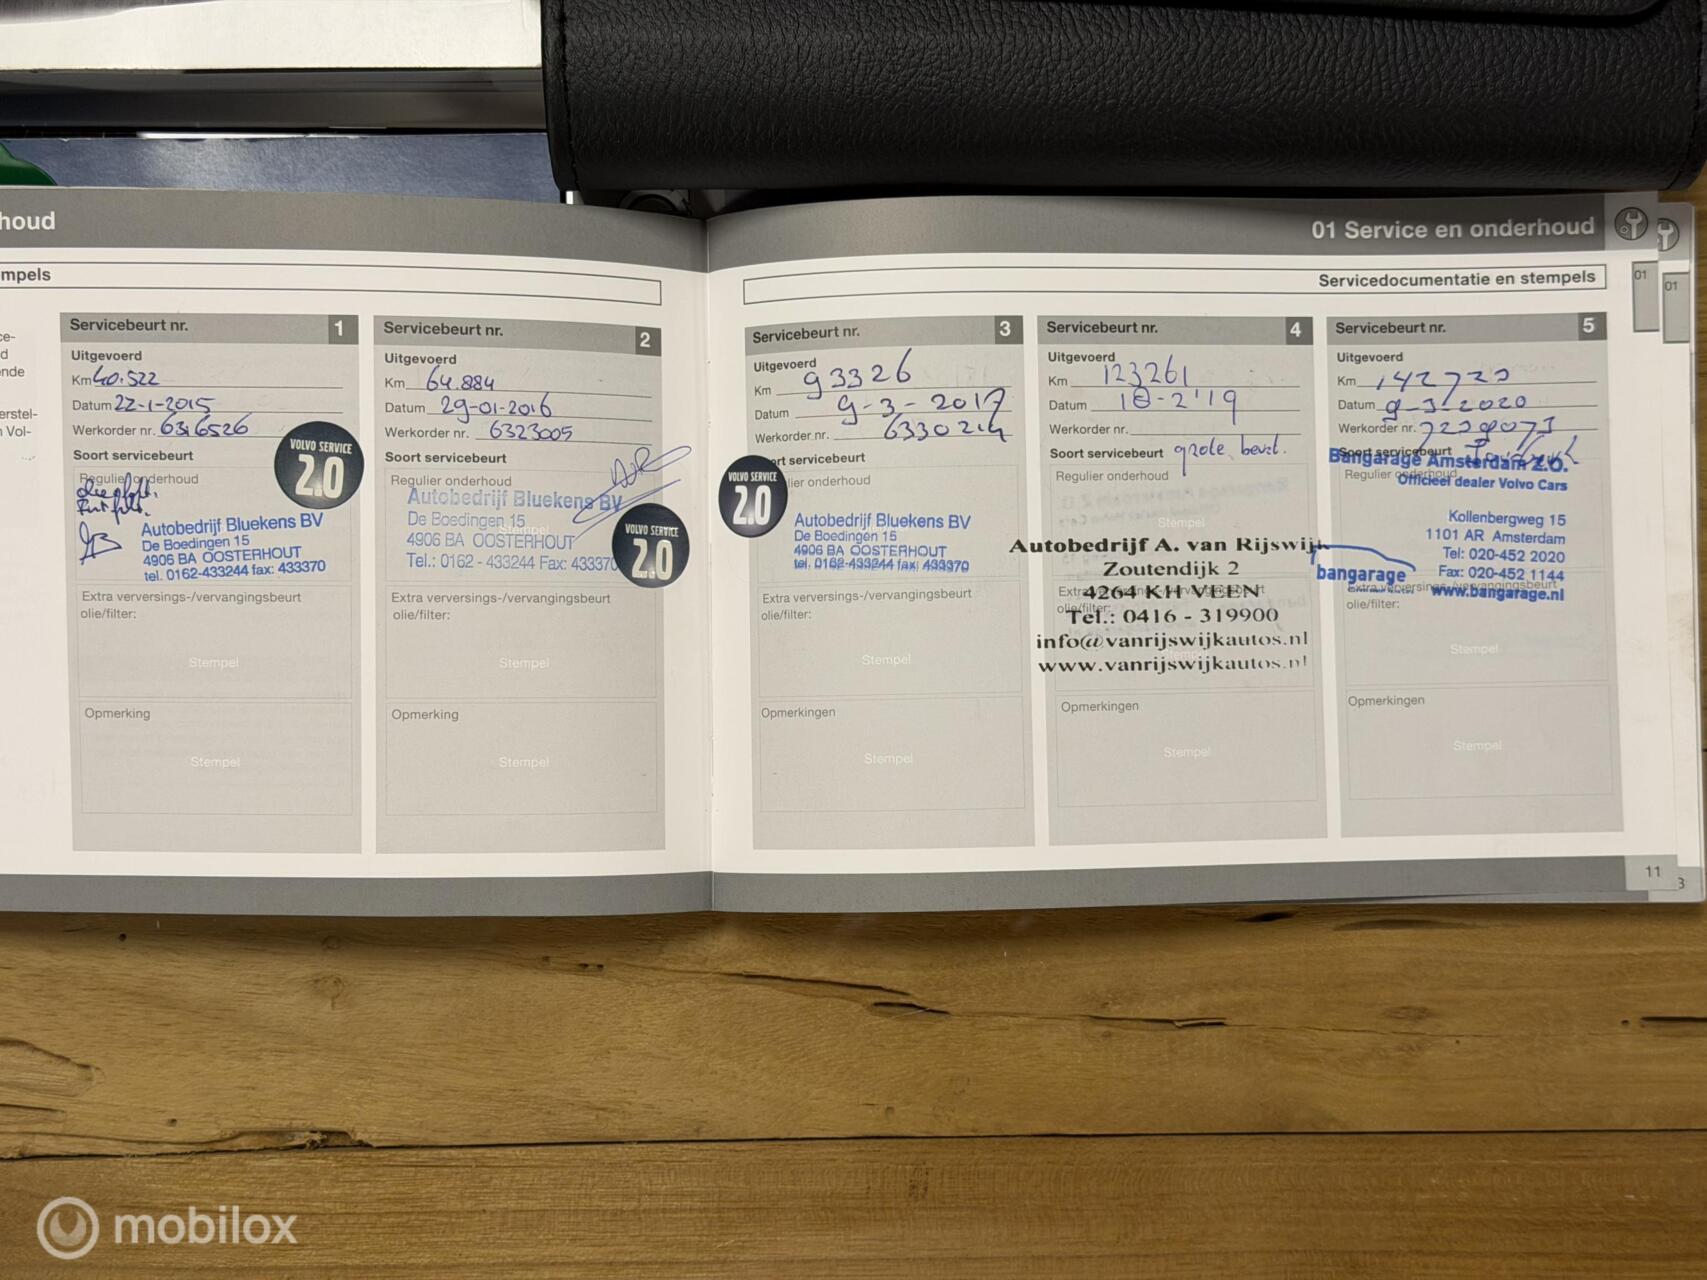 houd
mpels
ce-
d
ende
erstel-
n Vol-
Servicebeurt nr. 1
Uitgevoerd
Km 40.522
Datum 22-1-2015
Werkorder nr. 6316526
Soort servicebeurt
VOLVO SERVICE
2.0
Regulier onderhoud
Autobedrijf Bluekens BV
De Boedingen 15
4906 BA OOSTERHOUT
tel. 0162-433244 fax: 433370
Extra verversings-/vervangingsbeurt
olie/filter:
Stempel
Opmerking
Stempel
Servicebeurt nr. 2
Uitgevoerd
Km 64.884
Datum 29-01-2016
Werkorder nr. 6323005
Soort servicebeurt
Regulier onderhoud
Autobedrijf Bluekens BV
De Boedingen 15
Stempel
4906 BA OOSTERHOUT
Tel.: 0162 - 433244 Fax: 433370
VOLVO SERVICE
2.0
Extra verversings-/vervangingsbeurt
olie/filter:
Stempel
Opmerking
Stempel
01 Service en onderhoud
Servicedocumentatie en stempels
01
01
Servicebeurt nr. 3
Uitgevoerd
Km 93326
Datum 9-3-2017
Werkorder nr. 6330214
ort servicebeurt
VOLVO SERVICE
2.0
lier onderhoud
Autobedrijf Bluekens BV
De Boedingen 15
4906 BA OOSTERHOUT
tel. 0162-433244 fax: 433370
Extra verversings-/vervangingsbeurt
olie/filter:
Stempel
Opmerkingen
Stempel
Servicebeurt nr. 4
Uitgevoerd
Km 123261
Datum 18-2-'19
Werkorder nr.
Soort servicebeurt grote beurt.
Regulier onderhoud
Stempel
Autobedrijf A. van Rijswijk
Zoutendijk 2
4264 KH VEEN
Extra verversings-/vervangingsbeurt
olie/filter:
Tel.: 0416 - 319900
info@vanrijswijkautos.nl
www.vanrijswijkautos.nl
Opmerkingen
Stempel
Servicebeurt nr. 5
Uitgevoerd
Km 142720
Datum 9-3-2020
Werkorder nr.
Soort servicebeurt
Bangarage Amsterdam Z.O.
Regulier onderhoud
Officieel dealer Volvo Cars
Kollenbergweg 15
1101 AR Amsterdam
Tel: 020-452 2020
Fax: 020-452 1144
www.bangarage.nl
bangarage
Extra verversings-/vervangingsbeurt
olie/filter:
Stempel
Opmerkingen
Stempel
11
3
mobilox